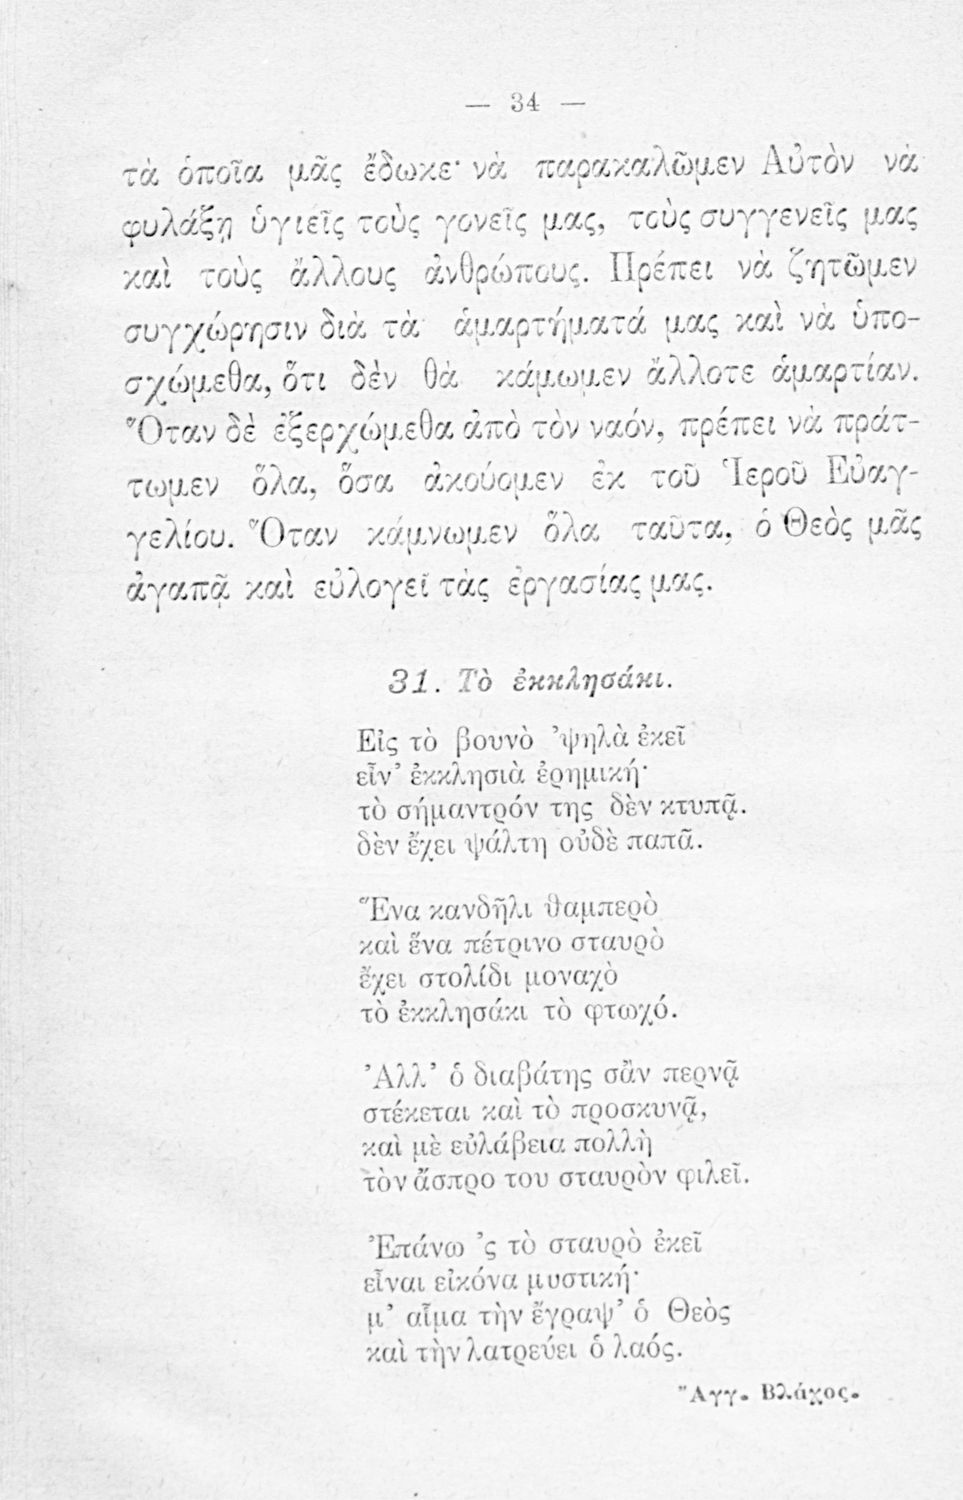 — 34 —
τὰ ὁποῖα μᾶς ἔδωκε· νὰ παρακαλῶμεν Αὐτὸν νὰ
φυλάξῃ ὑγιεῖς τοὺς γονεῖς μας, τοὺς συγγενεῖς μας
καὶ τοὺς ἄλλους ἀνθρώπους. Πρέπει νὰ ζητῶμεν
συγχώρησιν διὰ τὰ ἁμαρτήματά μας καὶ νὰ ὑπο-
σχώμεθα, ὅτι δὲν θὰ κάμωμεν ἄλλοτε ἁμαρτίαν.
Ὅταν δὲ ἐξερχώμεθα ἀπὸ τὸν ναόν, πρέπει νὰ πράτ-
τωμεν ὅλα, ὅσα ἀκούομεν ἐκ τοῦ Ἱεροῦ Εὐαγ-
γελίου. Ὅταν κάμνωμεν ὅλα ταῦτα, ὁ Θεὸς μᾶς
ἀγαπᾷ καὶ εὐλογεῖ τὰς ἐργασίας μας.
31. Τὸ ἐκκλησάκι.
Εἰς τὸ βουνὸ ᾿ψηλὰ ἐκεῖ
εἶν᾿ ἐκκλησιὰ ἐρημική·
τὸ σήμαντρόν της δὲν κτυπᾷ.
δὲν ἔχει ψάλτη οὐδὲ παπᾶ.
Ἕνα κανδῆλι θαμπερὸ
καὶ ἕνα πέτρινο σταυρὸ
ἔχει στολίδι μοναχὸ
τὸ ἐκκλησάκι τὸ φτωχό.
Ἀλλ᾿ ὁ διαβάτης σὰν περνᾷ
στέκεται καὶ τὸ προσκυνᾷ,
καὶ μὲ εὐλάβεια πολλὴ
τὸν ἄσπρο του σταυρὸν φιλεῖ.
Ἐπάνω ᾿ς τὸ σταυρὸ ἐκεῖ
εἶναι εἰκόνα μυστική·
μ᾿ αἷμα τὴν ἔγραψ᾿ ὁ Θεὸς
καὶ τὴν λατρεύει ὁ λαός.
Ἄγγ. Βλάχος.